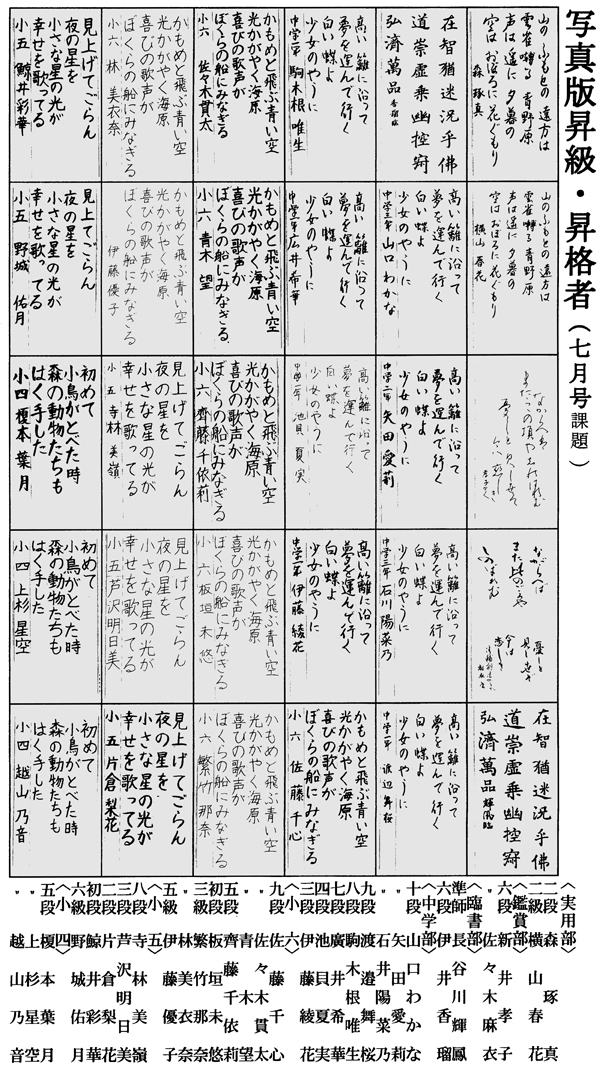 写真版昇級・昇格者（七月号課題）
山のふもとの遠方は
雲雀囀る青野原
声は遥に夕暮の
空はおぼろに花ぐもり
森琢真
山のふもとの遠方は
雲雀囀る青野原
声は遥に夕暮の
空はおぼろに花ぐもり
横山春花
在智猶迷況乎佛
道崇虚乗幽控寂
弘済萬品 輝鳳臨
在智猶迷況乎佛
道崇虚乗幽控寂
弘済萬品 香瑠臨
高い籬に沿って
夢を運んで行く
白い蝶よ
少女のやうに
中学三年 山口わかな
高い籬に沿って
夢を運んで行く
白い蝶よ
少女のやうに
中学二年 矢田愛莉
高い籬に沿って
夢を運んで行く
白い蝶よ
少女のやうに
高い籬に沿って
夢を運んで行く
白い蝶よ
少女のやうに
中学一年 渡邉舞桜
高い籬に沿って
夢を運んで行く
白い蝶よ
少女のやうに
中学一年 駒木根唯生
高い籬に沿って
夢を運んで行く
白い蝶よ
少女のやうに
高い籬に沿って
夢を運んで行く
白い蝶よ
少女のやうに
中学一年 池貝夏実
高い籬に沿って
夢を運んで行く
白い蝶よ
少女のやうに
中学一年 伊藤綾花
かもめと飛ぶ青い空
光かがやく海原
喜びの歌声が
ぼくらの船にみなぎる
小六 佐藤千心
かもめと飛ぶ青い空
光かがやく海原
喜びの歌声が
ぼくらの船にみなぎる
小六 佐々木貫太
かもめと飛ぶ青い空
光かがやく海原
喜びの歌声が
ぼくらの船にみなぎる
小六 青木望
かもめと飛ぶ青い空
光かがやく海原
喜びの歌声が
ぼくらの船にみなぎる
小六 齊藤千依莉
かもめと飛ぶ青い空
光かがやく海原
喜びの歌声が
ぼくらの船にみなぎる
小六 板垣未悠
かもめと飛ぶ青い空
光かがやく海原
喜びの歌声が
ぼくらの船にみなぎる
小六 繁竹那奈
かもめと飛ぶ青い空
光かがやく海原
喜びの歌声が
ぼくらの船にみなぎる
小六 林美衣奈
かもめと飛ぶ青い空
光かがやく海原
喜びの歌声が
ぼくらの船にみなぎる
伊藤優子
見上げてごらん
夜の星を
小さな星の光が
幸せを歌ってる
小五 寺林美嶺
見上げてごらん
夜の星を
小さな星の光が
幸せを歌ってる
小五 芦沢明日美
見上げてごらん
夜の星を
小さな星の光が
幸せを歌ってる
小五 片倉梨花
見上げてごらん
夜の星を
小さな星の光が
幸せを歌ってる
小五 鯨井彩華
見上げてごらん
夜の星を
小さな星の光が
幸せを歌ってる
小五 野城佑月
初めて
小鳥がとべた時
森の動物たちも
はく手した
小四 榎本葉月
初めて
小鳥がとべた時
森の動物たちも
はく手した
小四 上杉星空
初めて
小鳥がとべた時
森の動物たちも
はく手した
小四 越山乃音
〈実用部〉
二段 森琢真
二級 横山春花
〈鑑賞部〉
六段 新井孝子
〃 佐々木麻衣
〈臨書部〉
準師 長谷川輝鳳
六段 伊井香瑠
〈中学部〉
十段 山口わかな
〃 矢田愛莉
〃 石井陽菜乃
九段 渡邉舞桜
九段 駒木根唯生
七段 廣井希華
四段 池貝夏実
三段 伊藤綾花
〈小六〉
九段 佐藤千心
〃 佐々木貫太
〃 青木望
五段 齊藤千依莉
初段 板垣未悠
三級 繁竹那奈
〃 林美衣奈
五級 伊藤優子
〈小五〉
八段 寺林美嶺
三段 芦沢明日美
二段 片倉梨花
初段 鯨井彩華
六級 野城佑月
〈小四〉
五段 榎本葉月
〃 上杉星空
〃 越山乃音